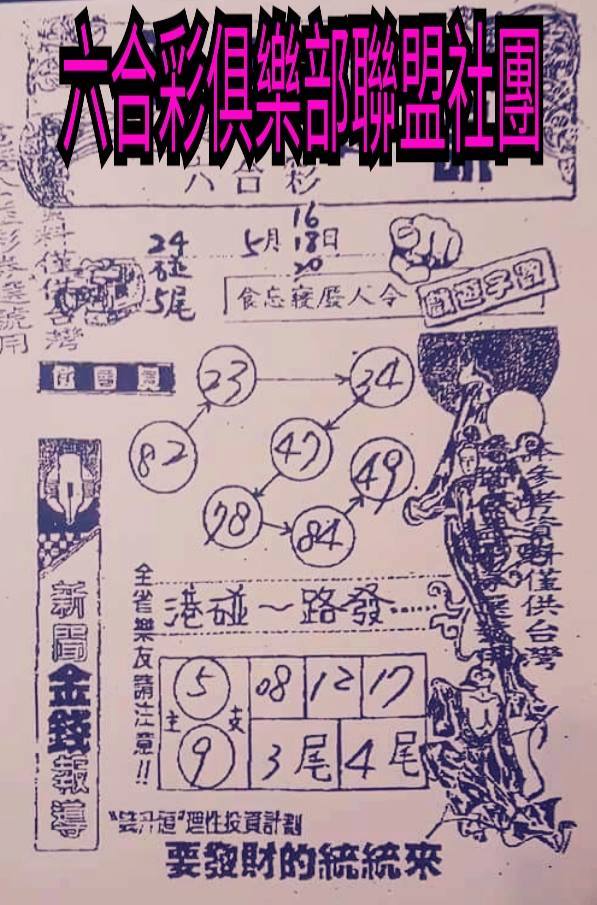 六合彩俱樂部聯盟社團
六合彩
24
碰
5尾
5月
16
18日
20
食忘寢廢人令
數遊字
23
34
82
47
49
78
84
全省樂友請注意!!
港碰~路發……
5
主 支
9
08
12
17
3尾
4尾
新聞金錢報導
僅供台灣
理性投資計劃
要發財的統統來